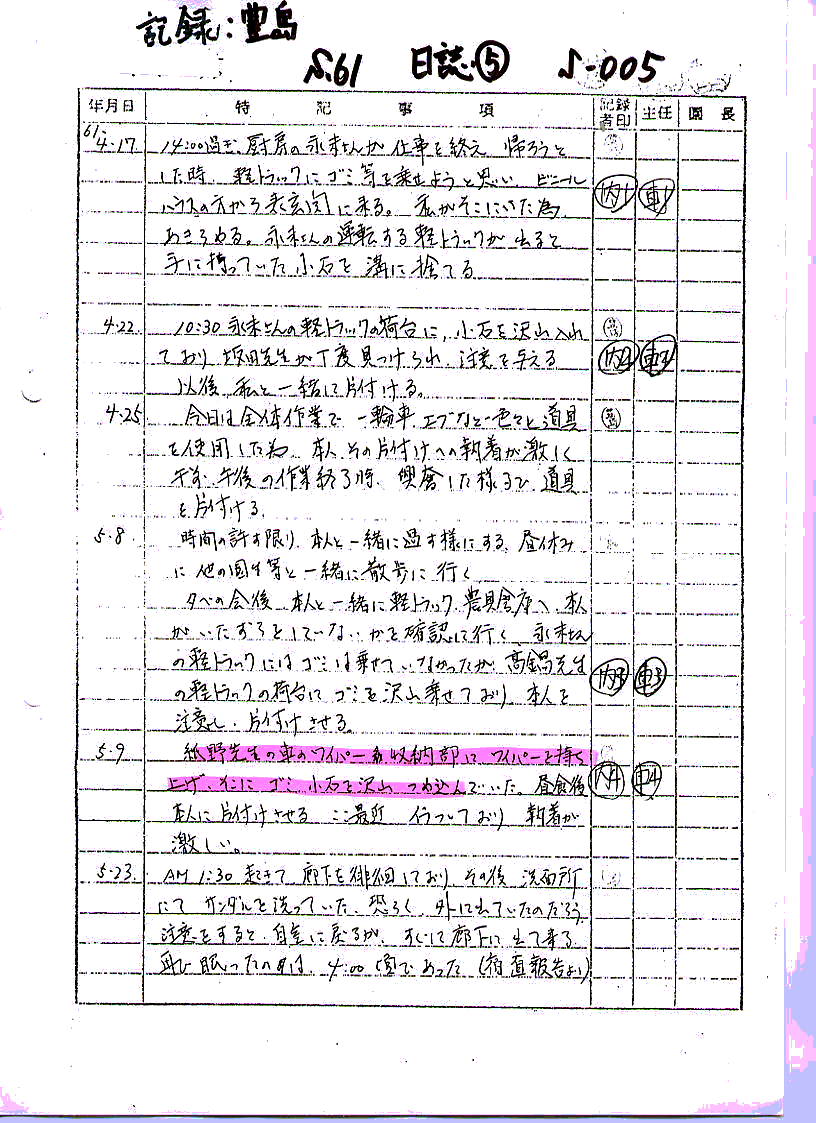 記録:豊島
S.61 日誌⑤ S-005
年月日 特記事項 記録者印 主任 園長
61.
4.17 14:00過ぎ、厨房の永末さんが仕事を終え 帰ろうと
した時、軽トラックにゴミ等を乗せようと思い ビニール
ハウスの方から表玄関に来る。私がそこにいた為、
内1 車1
あきらめる。永末さんの運転する軽トラックが出ると
手に持っていた小石を溝に捨てる
4.22 10:30 永末さんの軽トラックの荷台に、小石を沢山入れ
ており 坂田先生が丁度見つけられ、注意を与える
内2 車2
以後、私と一緒に片付ける。
4.25 今日は全体作業で 一輪車、エブなど色々と道具
を使用した為 本人、その片付けへの執着が激しく
午前、午後の作業終了時、興奮した様子で 道具
を片付ける。
5.8 時間の許す限り、本人と一緒に過す様にする、昼休み
に 他の園生等と一緒に散歩に行く
夕べの会後、本人と一緒に軽トラック、農具舎庫へ、本人
がいたずらをしていないかを確認に行く 永末さん
の軽トラックにはゴミは乗せていなかったが、高鍋先生
内3 車3
の軽トラックの荷台に ゴミを沢山乗せており、本人を
注意し、片付けさせる。
5.9 紙野先生の車のワイパー 収納部に ワイパーを持ち
上げ、そこに ゴミ、小石を沢山 つめ込んでいた。昼食後
内4 車4
本人に片付けさせる ここ最近 行っており 執着が
激しい。
5.23 AM 1:30 起きて 廊下を徘徊しており、その後 洗面所
にて サンダルを洗っていた、恐らく、外に出ていたのだろう
注意をすると、自室に戻るが、すぐに廊下に出て来る
再び 眠ったのは、4:00頃であった (宿直報告より)